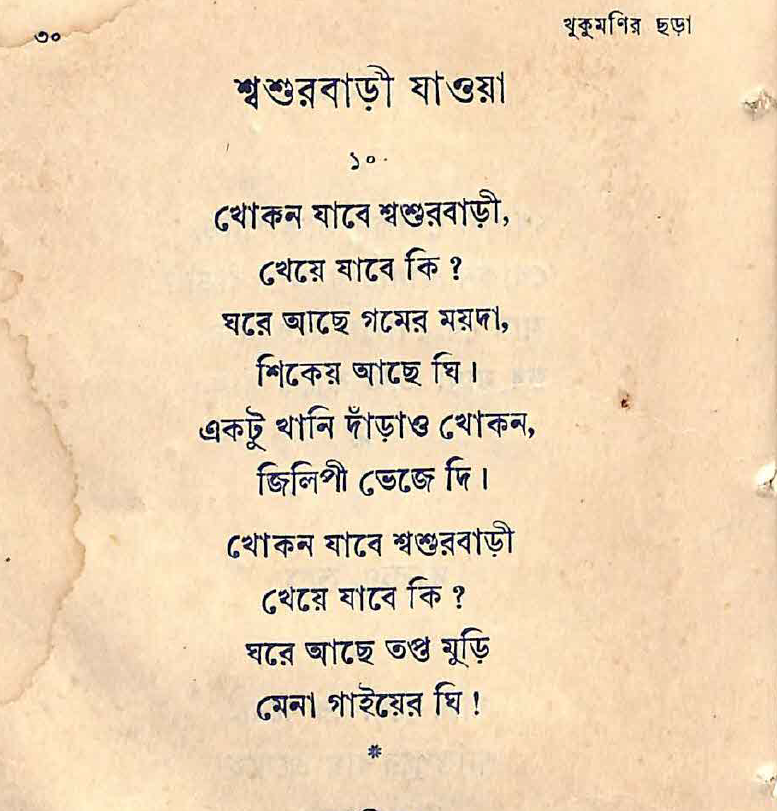 ৩০
খুকুমণির ছড়া
শ্বশুরবাড়ী যাওয়া
১০
খোকন যাবে শ্বশুরবাড়ী,
খেয়ে যাবে কি ?
ঘরে আছে গমের ময়দা,
শিকেয় আছে ঘি।
একটু খানি দাঁড়াও খোকন,
জিলিপী ভেজে দি।
খোকন যাবে শ্বশুরবাড়ী
খেয়ে যাবে কি ?
ঘরে আছে তপ্ত মুড়ি
মেনা গাইয়ের ঘি !
*